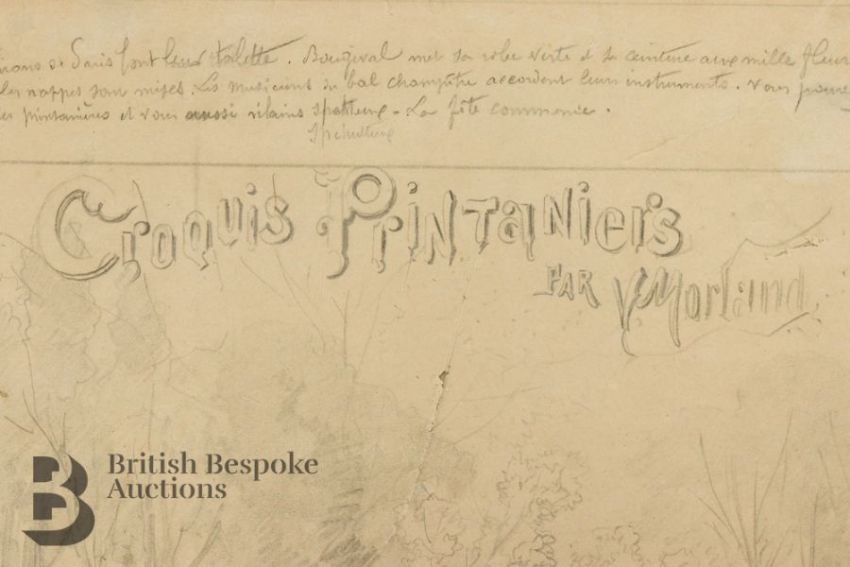 de Paris font leur toilette. Bougival met sa robe verte et sa ceinture aux mille fleurs
les nappes sont mises. Les musiciens du bal champêtre accordent leurs instruments. Vous
printanières et vous aussi vilains spatteurs - La fête commence.
Croquis Printaniers
PAR V. Morland
British Bespoke
Auctions